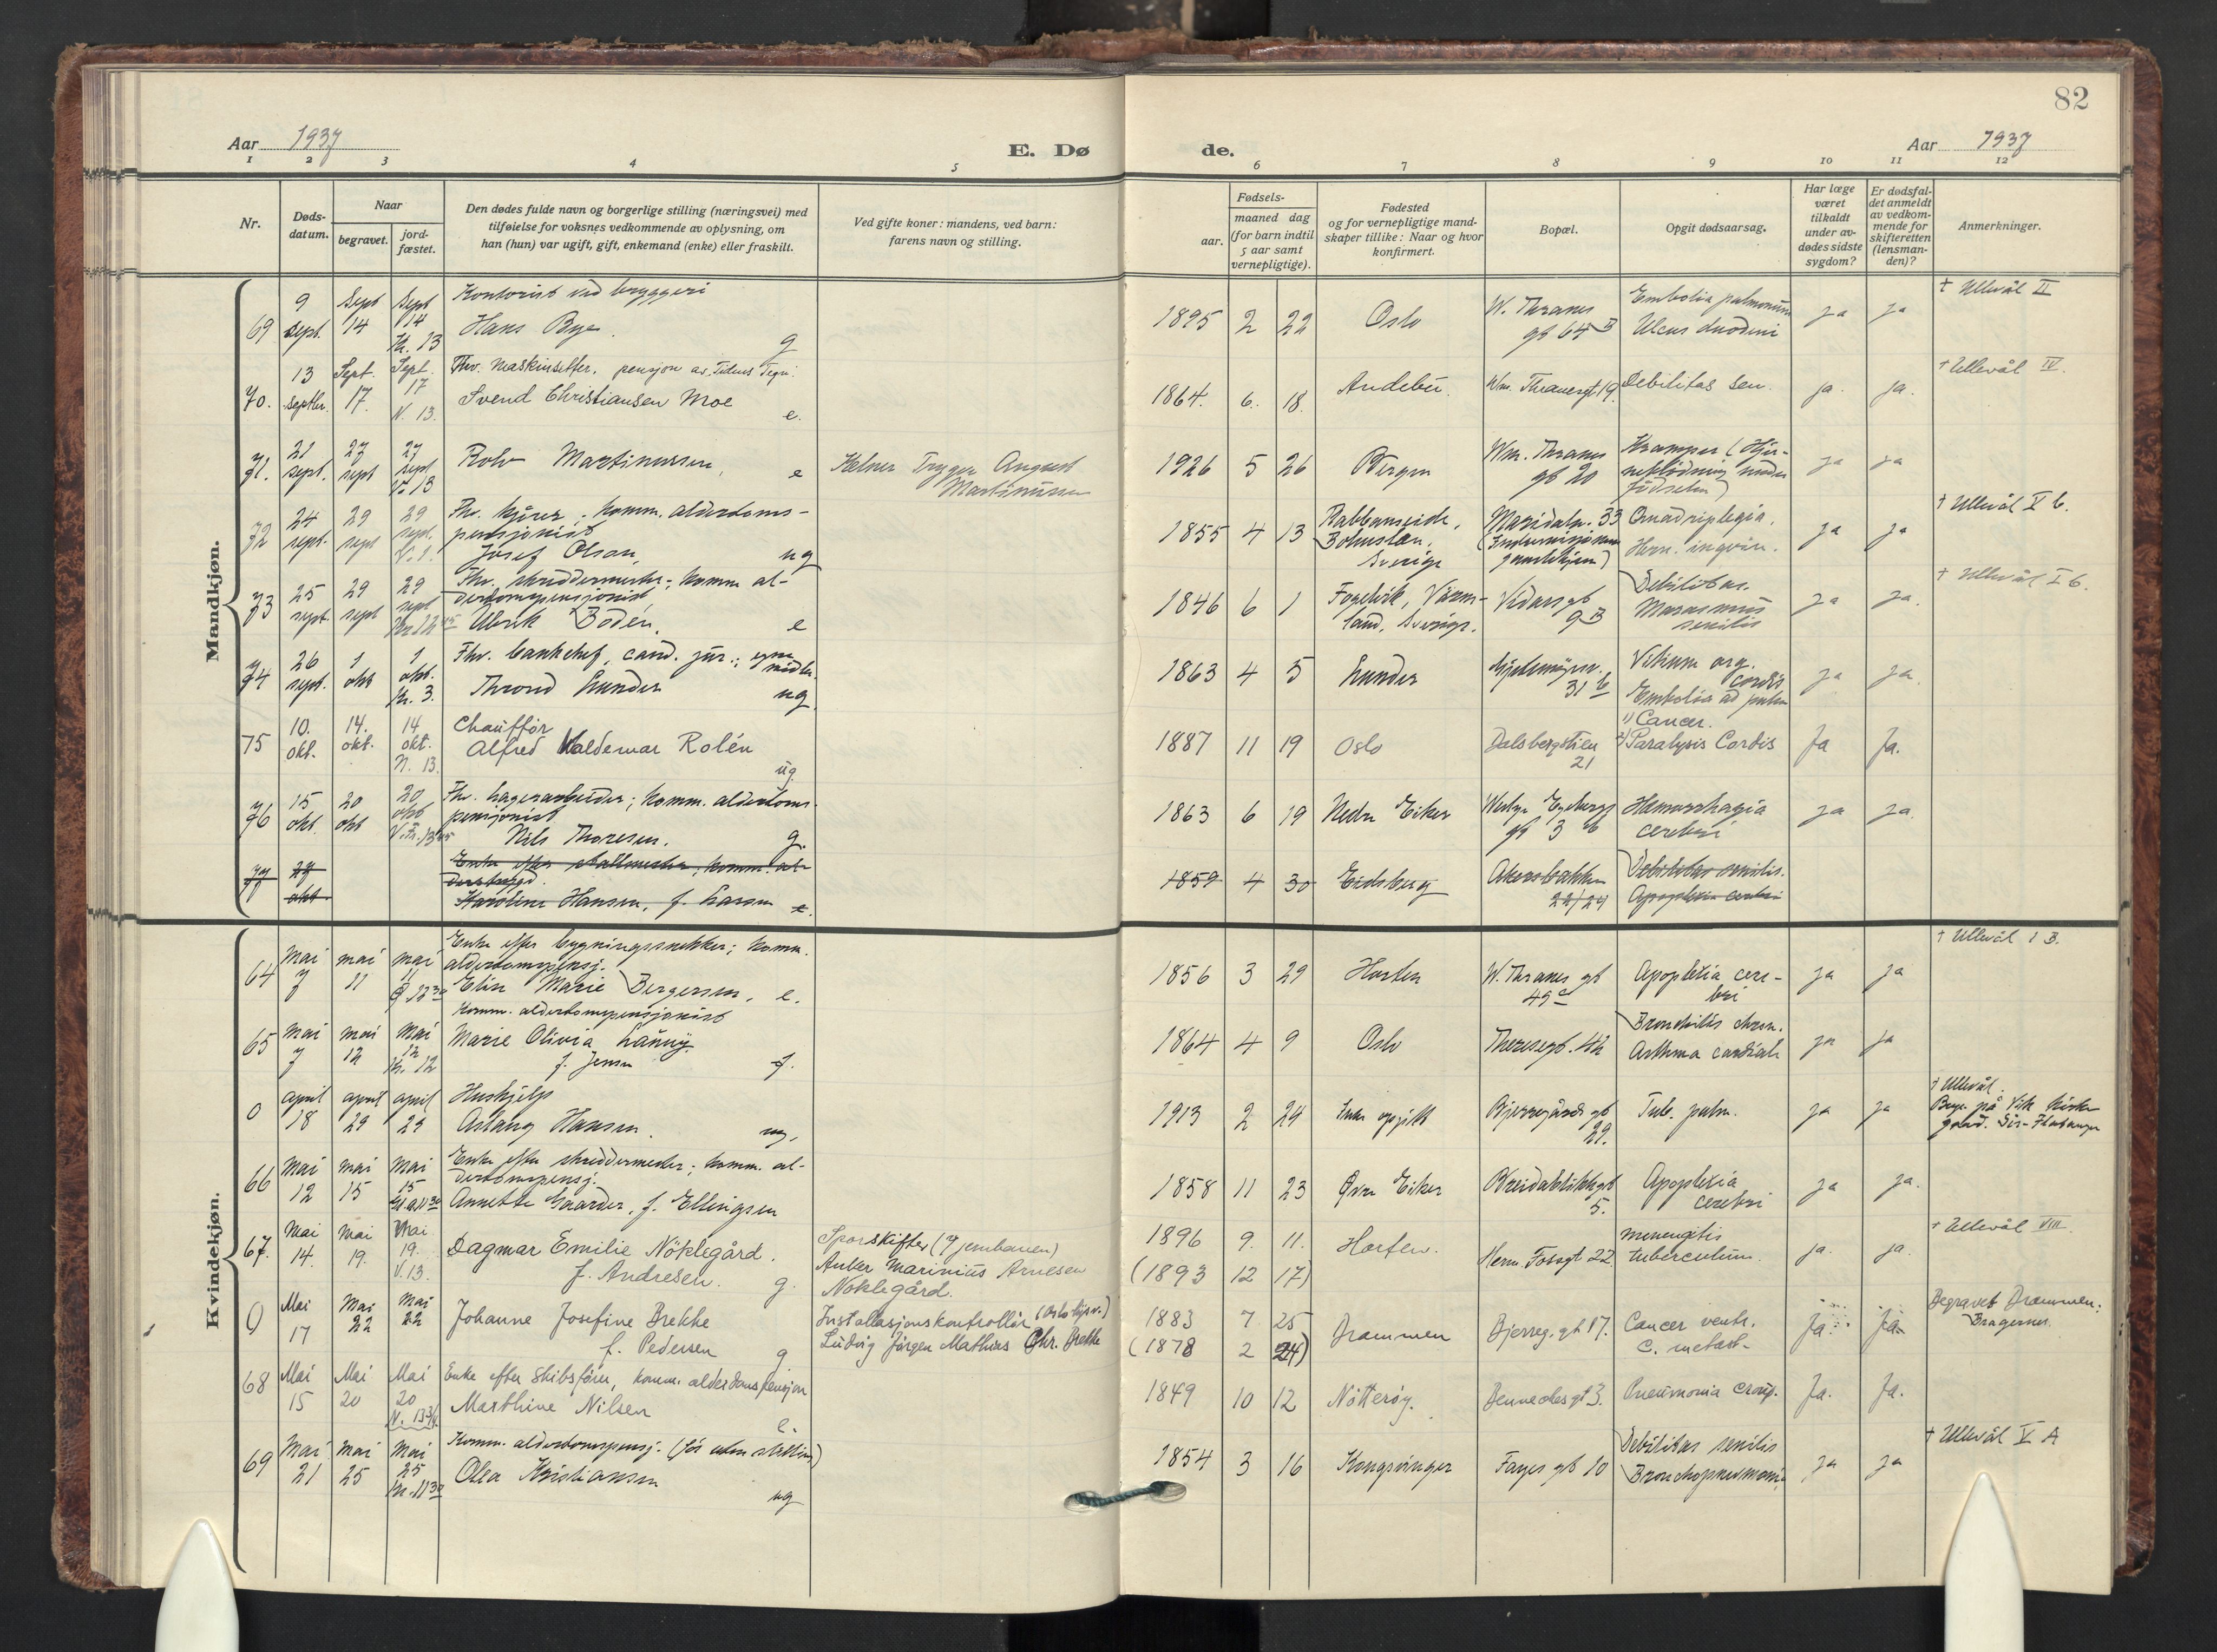 82
Aar 1937
E. Dø
de.
Aar 1937
1 2 3 4 5 6 7 8 9 10 11 12
Nr.
Døds-
datum.
Naar
begravet.
jord-
fæstet.
Den dødes fulde navn og borgerlige stilling (næringsvei) med
tilføielse for voksnes vedkommende av oplysning, om
han (hun) var ugift, gift, enkemand (enke) eller fraskilt.
Ved gifte koner: mandens, ved barn:
farens navn og stilling.
Fødsels-
aar.
maaned dag
(for barn indtil
5 aar samt
vernepligtige).
Fødested
og for vernepligtige mand-
skaper tillike: Naar og hvor
konfirmert.
Bopæl.
Opgit dødsaarsag.
Har læge
været
tilkaldt
under av-
dødes sidste
sygdom?
Er dødsfal-
det anmeldt
av vedkom-
mende for
skifteretten
(lensman-
den)?
Anmerkninger.
Mandkjøn.
69
9
sept.
Sept
14
Sept
14
Kl. 13
Kontorist ved bryggeri
Hans Bye.
g
1895 2 22
Oslo
W. Thranes
gt 64 B
Embolia pulmonum
Ulcus duodeni
ja ja
† Ullevål II
70.
13
septbr.
Sept.
17.
Sept.
17
V. 13.
Thv. Maskinsetter, pensjon av Tidens Tegn.
Svend Christiansen Moe
e.
1864. 6. 18.
Andebu.
Wm. Thranesgt 19.
Debilitas sen.
ja. ja.
† Ullevål IV.
71.
21
sept.
27
sept
27
sept
V. 13
Rolv Martinussen,
e
Kelner Trygve August
Martinussen
1926 5 26
Bergen
Wm. Thranes
gt 20
Kramper (Hjer-
neblødning under
fødselen)
ja ja
72
24
sept.
29
sept
29
sept.
V. 1.
Thv. kjører; komm. alderdoms-
pensjonist
Josef Olsen,
ug
1855 4 13
Rabbaneide,
Bohuslen,
Sverige
Maridalsv. 33
(Indremisjonens
gamlehjem)
Quadriplegia.
Hern. ingvin.
ja ja
† Ullevål V b.
73
25
sept.
29
sept
29
sept
Thv. skreddermester; komm. al-
derdomspensjonist
Ulrik Bodén,
e
1846 6 1
Fogelvik, Värm-
land, Sverige.
Vidarsgt
9 B
Debilitas.
Marasmus
senilis
ja ja.
† Ullevål I b.
74
26
sept.
1
okt
1
okt.
Kl. 3.
Thv. bankchef, cand. jur.; egne
midler.
Thrond Lunder
ug.
1863 4 5
Lunder
31 b
Vitium org.
cordis
Embolia ad pulm
ja ja.
75
10.
okt.
14.
okt.
14
okt.
N. 13.
Chauffør
Alfred Valdemar Rolén
ug.
1887 11 19
Oslo
Dalsbergstien
21
1) Cancer.
2) Paralysis Cordis
Ja Ja.
76
15
okt.
20
okt
20
okt
Thv. lagerarbeider; komm. alderdoms-
pensjonist
Nils Thoresen.
g.
1863 6 19
Nedre Eiker
Wedye Egebergs
gt 3 b
Hæmorrhagia
cerebri
ja ja.
77
27
okt.
Karoline Hansen, f. Larsen e.
1859 4 30
Eidsberg
Akersbakken
22/24
Debilitas senilis.
Apoplexia cerebri
Kvindekjøn.
64
Mai
7
mai
11
mai
11
Enke efter bygningssnekker; komm.
alderdomspensj.
Elin Marie Bergersen, e.
1856 3 29
Horten
W. Thranes gt
49 c
Apoplexia cere-
bri
ja ja
† Ullevål I B.
65
Mai
7
Mai
12
Mai
12
Kl. 12
Komm. alderdomspensjonist
Marie Olivia Lanny
f. Jensen
f.
1864 4 9
Oslo
Theresegt. 42
Bronchitis chron.
Asthma cardiale
ja ja
0
april
18
april
29
april
29
Hushjelp
Aslaug Hansen.
ug.
1913 2 24
Ikke opgitt
Bjerregårds gt
29.
Tub. pulm.
ja ja
† Ullevål.
66
Mai
12
Mai
15
Mai
15
Enke efter skreddermester; komm. al-
derdomspensj.
Annette Gaarder, f. Ellingsen
1858 11 23
Øvre Eiker
Breidablikkgt
5.
Apoplexia
cerebri
ja ja.
67.
Mai
14.
Mai
19.
Mai
19.
V. 13.
Dagmar Emilie Nöklegård.
f. Andresen. g.
Sporskifter (v/ jernbanen)
Anker Marinius Arnesen
Nöklegård.
1896 9. 11.
(1893 12 17)
Horten.
Herm. Fossgt 22.
Menengitis
tuberculum.
ja. ja.
† Ullevål VIII.
0
Mai
17
Mai
22
Mai
22
Johanne Josefine Brekke
f. Pedersen g
Installasjonskontrollør (Oslo lysv.)
Ludvig Jörgen Mathias Chr. Brekke
1883 7 25
(1878 2 24)
Drammen
Bjerreg. gt 17.
Cancer ventr.
c. metast.
Ja. Ja.
Begravet Drammen.
Bragernes.
68
Mai
15
Mai
20
Mai
20
Enke efter Skibsfører, komm. alderdomspensjon
Marthine Nilsen
e.
1849 10 12
Nötteröy.
Bennechesgt 3.
Pneumonia croup.
Ja. Ja.
69
Mai
21
Mai
25
Mai
25
Kl. 11 30
Komm. alderdomspensj. (før uten stilling)
Olea Kristiansen
ug
1854 3 16
Kongsvinger
Fayes gt 10
Debilitas senilis
Bronchopneumoni.
ja ja
† Ullevål V A